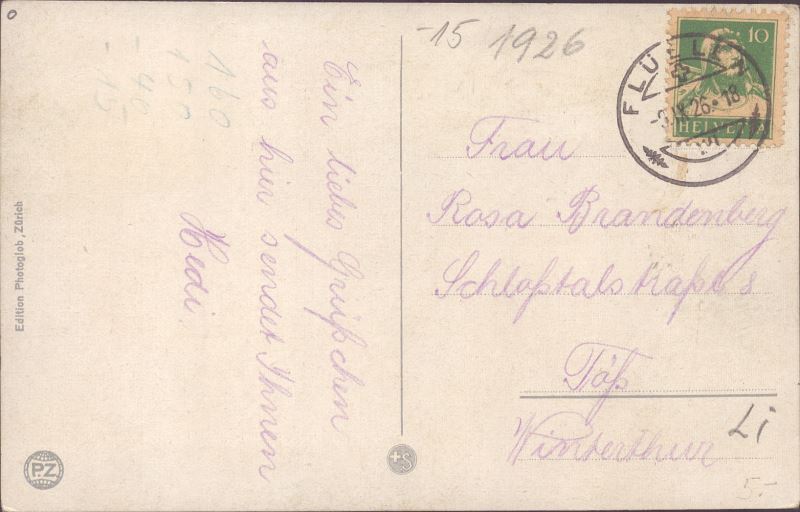 Ein liebes Grüßchen
aus hier sendet Ihnen
Hedi.
160
150
-40
-15
Edition Photoglob, Zürich
P.Z
+S
-15 1926
FLÜELEN
26.-18
10
HELVETIA
Frau
Rosa Brandenberg
Schloßtalstraße 8
Töß
Winterthur
Li
5.-